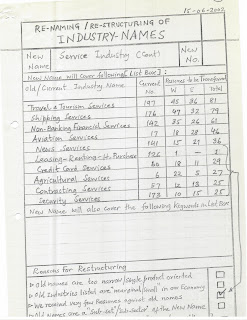 15-06-2002
RE-NAMING / RE-STRUCTURING OF
INDUSTRY-NAMES
New Name Service Industry (Cont) New No.
New Name will cover following List Box:
Old/Current Industry Name Current No. Resumes to be Transferred
W S total
Travel & Tourism Services 197 45 36 81
Shipping Services 176 47 32 79
Non-Banking Financial Services 142 35 26 61
Aviation Services 17 18 28 46
News Services 141 15 21 36
Leasing-Renting-H. Purchase 126 1 - 1
Credit Card Services 18 11 29
Agricultural Services 6 22 5 27
Contracting Services 57 12 13 25
Security Services 173 10 15 25
New Name will also cover the following Keywords in List Box
Reasons for Restructuring
Old names are too narrow/single product oriented
Old Industries listed are "marginal/small" in our Economy
We received very few Resumes against old names
Old names are a "Sub-set"/sub-sector of the New Name